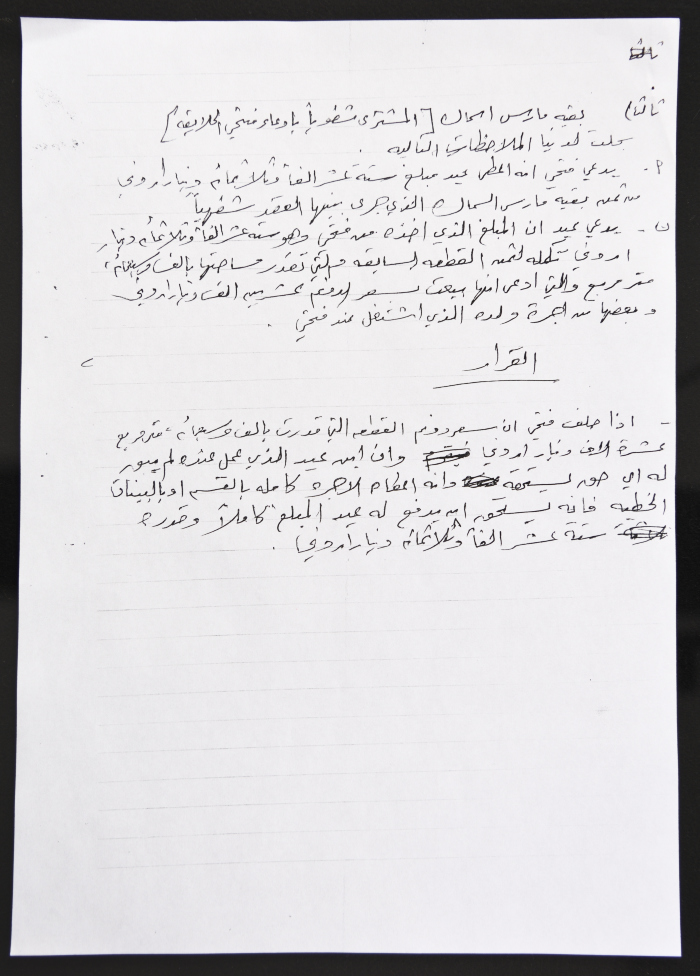 ثالثا
ثالثا) بقيه مارس السماك [المشترى شفوياً بادعاء فتحي الحلايقه]
سجلت لدينا الملاحظات التاليه .
أ- يدعي فتحي انه اعطى عيد مبلغ ستة عشر الفاً وثلاثمائه دينار اردني
من ثمن بقيه مارس السماك الذي جرى بينها العقد شفهياً
ب- يدعي عيد ان المبلغ الذي اخذه من فتحي وهو سته عشر الفاً وثلاثمائه دينار
اردني تكمله لثمن القطعه السابقه والتي تقدر مساحتها بالف وسبعمائه
متر مربع والتي ادعى انها بيعت بسعر الدونم عشرين الف دينار اردني
و بعضها من اجرة ولده الذي اشتغل عند فتحي .
القرار
- اذا حلف فتحي ان سعر دونم القطعه التي قدرت بالف وسبعمائه متر مربع
عشرة الاف دينار اردني وان ابن عيد الذي عمل عنده لم يبق
له اي حق يستحقه وانه اعطاه الاجره كامله بالقسم او بالبينات
الخطيه فانه يستحق ان يدفع له عيد المبلغ كاملاً وقدره
ستة عشر الفاً وثلاثمائه دينار اردني .